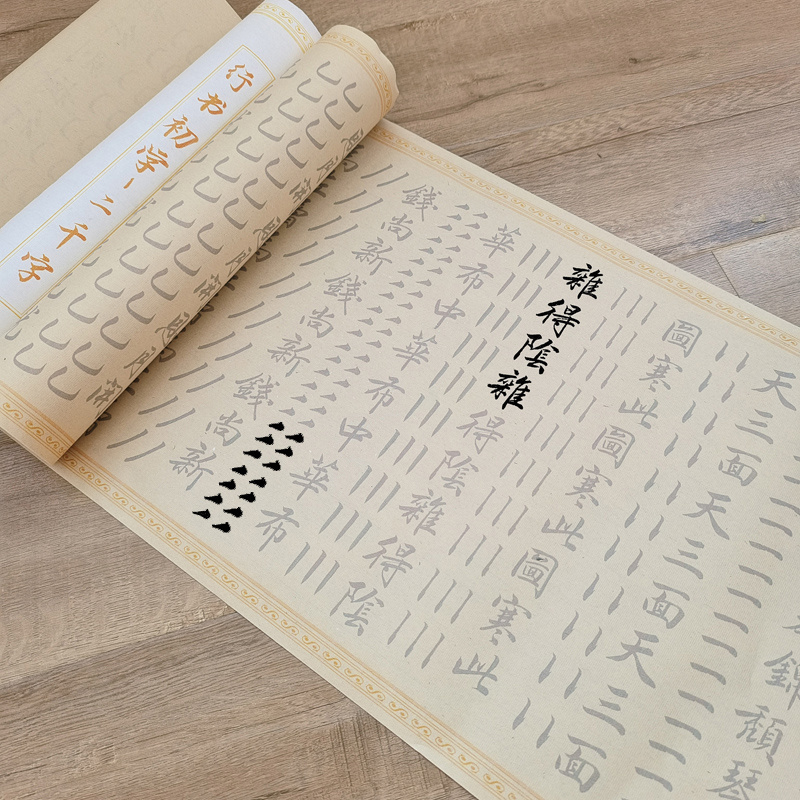 錦頽琴
天三面天三面天三面
圖寒此圖寒此圖寒此
雜得陰雜得陰雜得陰
華布中華布中華布
錢尚新錢尚新錢尚新
行书初字
二千字